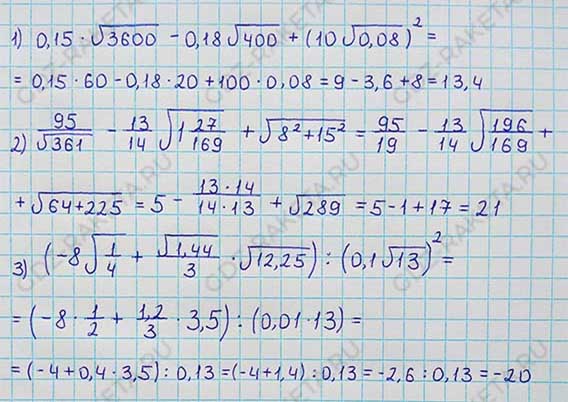 1) 0,15 · √3600 − 0,18√400 + (10√0,08)² =
= 0,15 · 60 − 0,18 · 20 + 100 · 0,08 = 9 − 3,6 + 8 = 13,4
2) 95/√361 − 13/14 √(1 27/169) + √(8² + 15²) = 95/19 − 13/14 √(196/169) +
+ √(64+225) = 5 − (13 · 14)/(14 · 13) + √289 = 5 − 1 + 17 = 21
3) (−8√(1/4) + √1,44/3 · √12,25) : (0,1√13)² =
= (−8 · 1/2 + 1,2/3 · 3,5) : (0,01 · 13) =
= (−4 + 0,4 · 3,5) : 0,13 = (−4 + 1,4) : 0,13 = −2,6 : 0,13 = −20
GDZ-RAKETA.RU